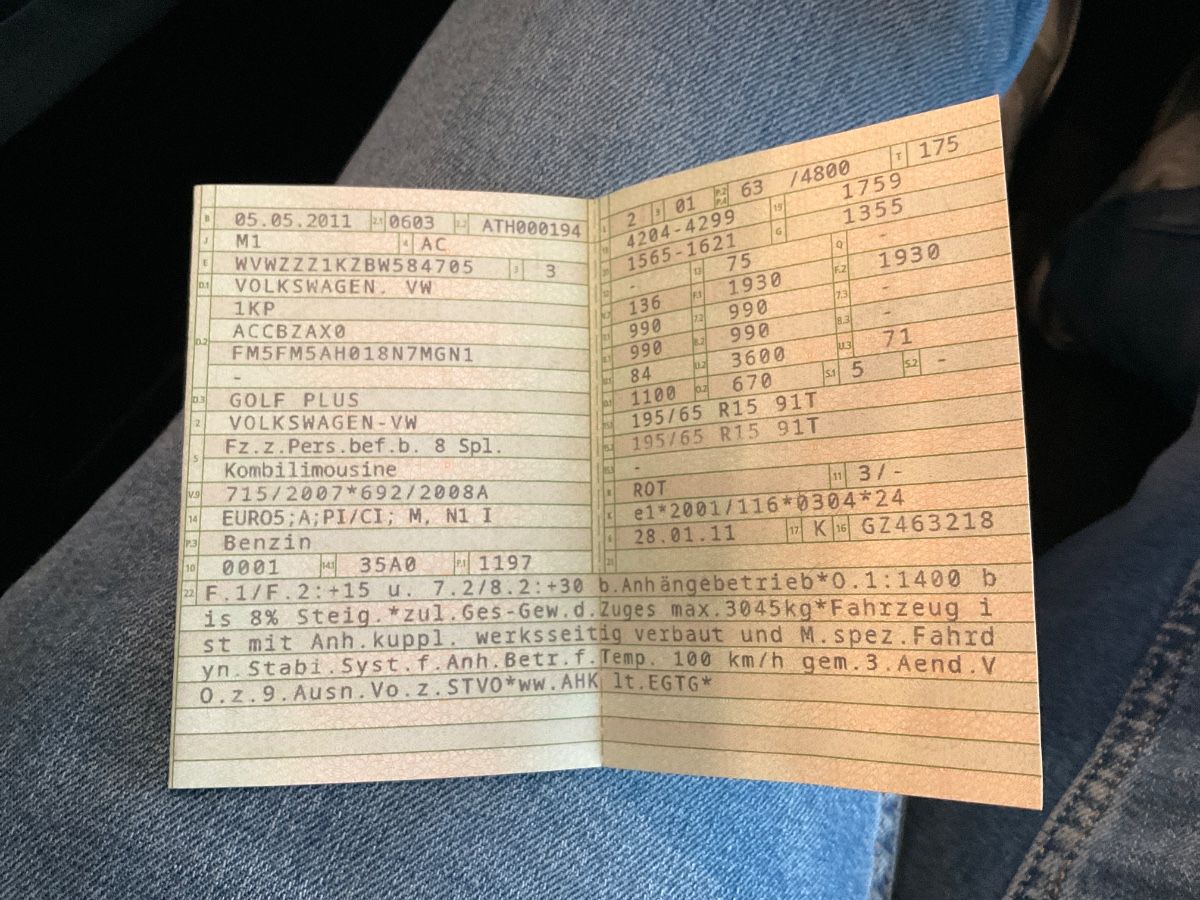 B 05.05.2011 2.1 0603 2.2 ATH000194
J M1 4 AC
E WVWZZZ1KZBW584705 3 3
D.1 VOLKSWAGEN. VW
1KP
D.2 ACCBZAX0
FM5FM5AH018N7MGN1
-
D.3 GOLF PLUS
2 VOLKSWAGEN-VW
5 Fz.z.Pers.bef.b. 8 Spl.
Kombilimousine
V.9 715/2007*692/2008A
14 EURO5;A;PI/CI; M, N1 I
P.3 Benzin
10 0001 14.1 35A0 P.1 1197
L 2 9 01 P.2 P.4 63 /4800 T 175
18 4204-4299 19 1759
20 1565-1621 G 1355
12 - 13 75 Q -
V.7 136 F.1 1930 F.2 1930
7.1 990 7.2 990 7.3 -
8.1 990 8.2 990 8.3 -
U.1 84 U.2 3600 U.3 71
O.1 1100 O.2 670 S.1 5 S.2 -
15.1 195/65 R15 91T
15.2 195/65 R15 91T
15.3 -
R ROT 11 3/-
K e1*2001/116*0304*24
6 28.01.11 17 K 16 GZ463218
21
22 F.1/F.2:+15 u. 7.2/8.2:+30 b.Anhängebetrieb*O.1:1400 b
is 8% Steig.*zul.Ges-Gew.d.Zuges max.3045kg*Fahrzeug i
st mit Anh.kuppl. werksseitig verbaut und M.spez.Fahrd
yn.Stabi.Syst.f.Anh.Betr.f.Temp. 100 km/h gem.3.Aend.V
O.z.9.Ausn.Vo.z.STVO*ww.AHK lt.EGTG*